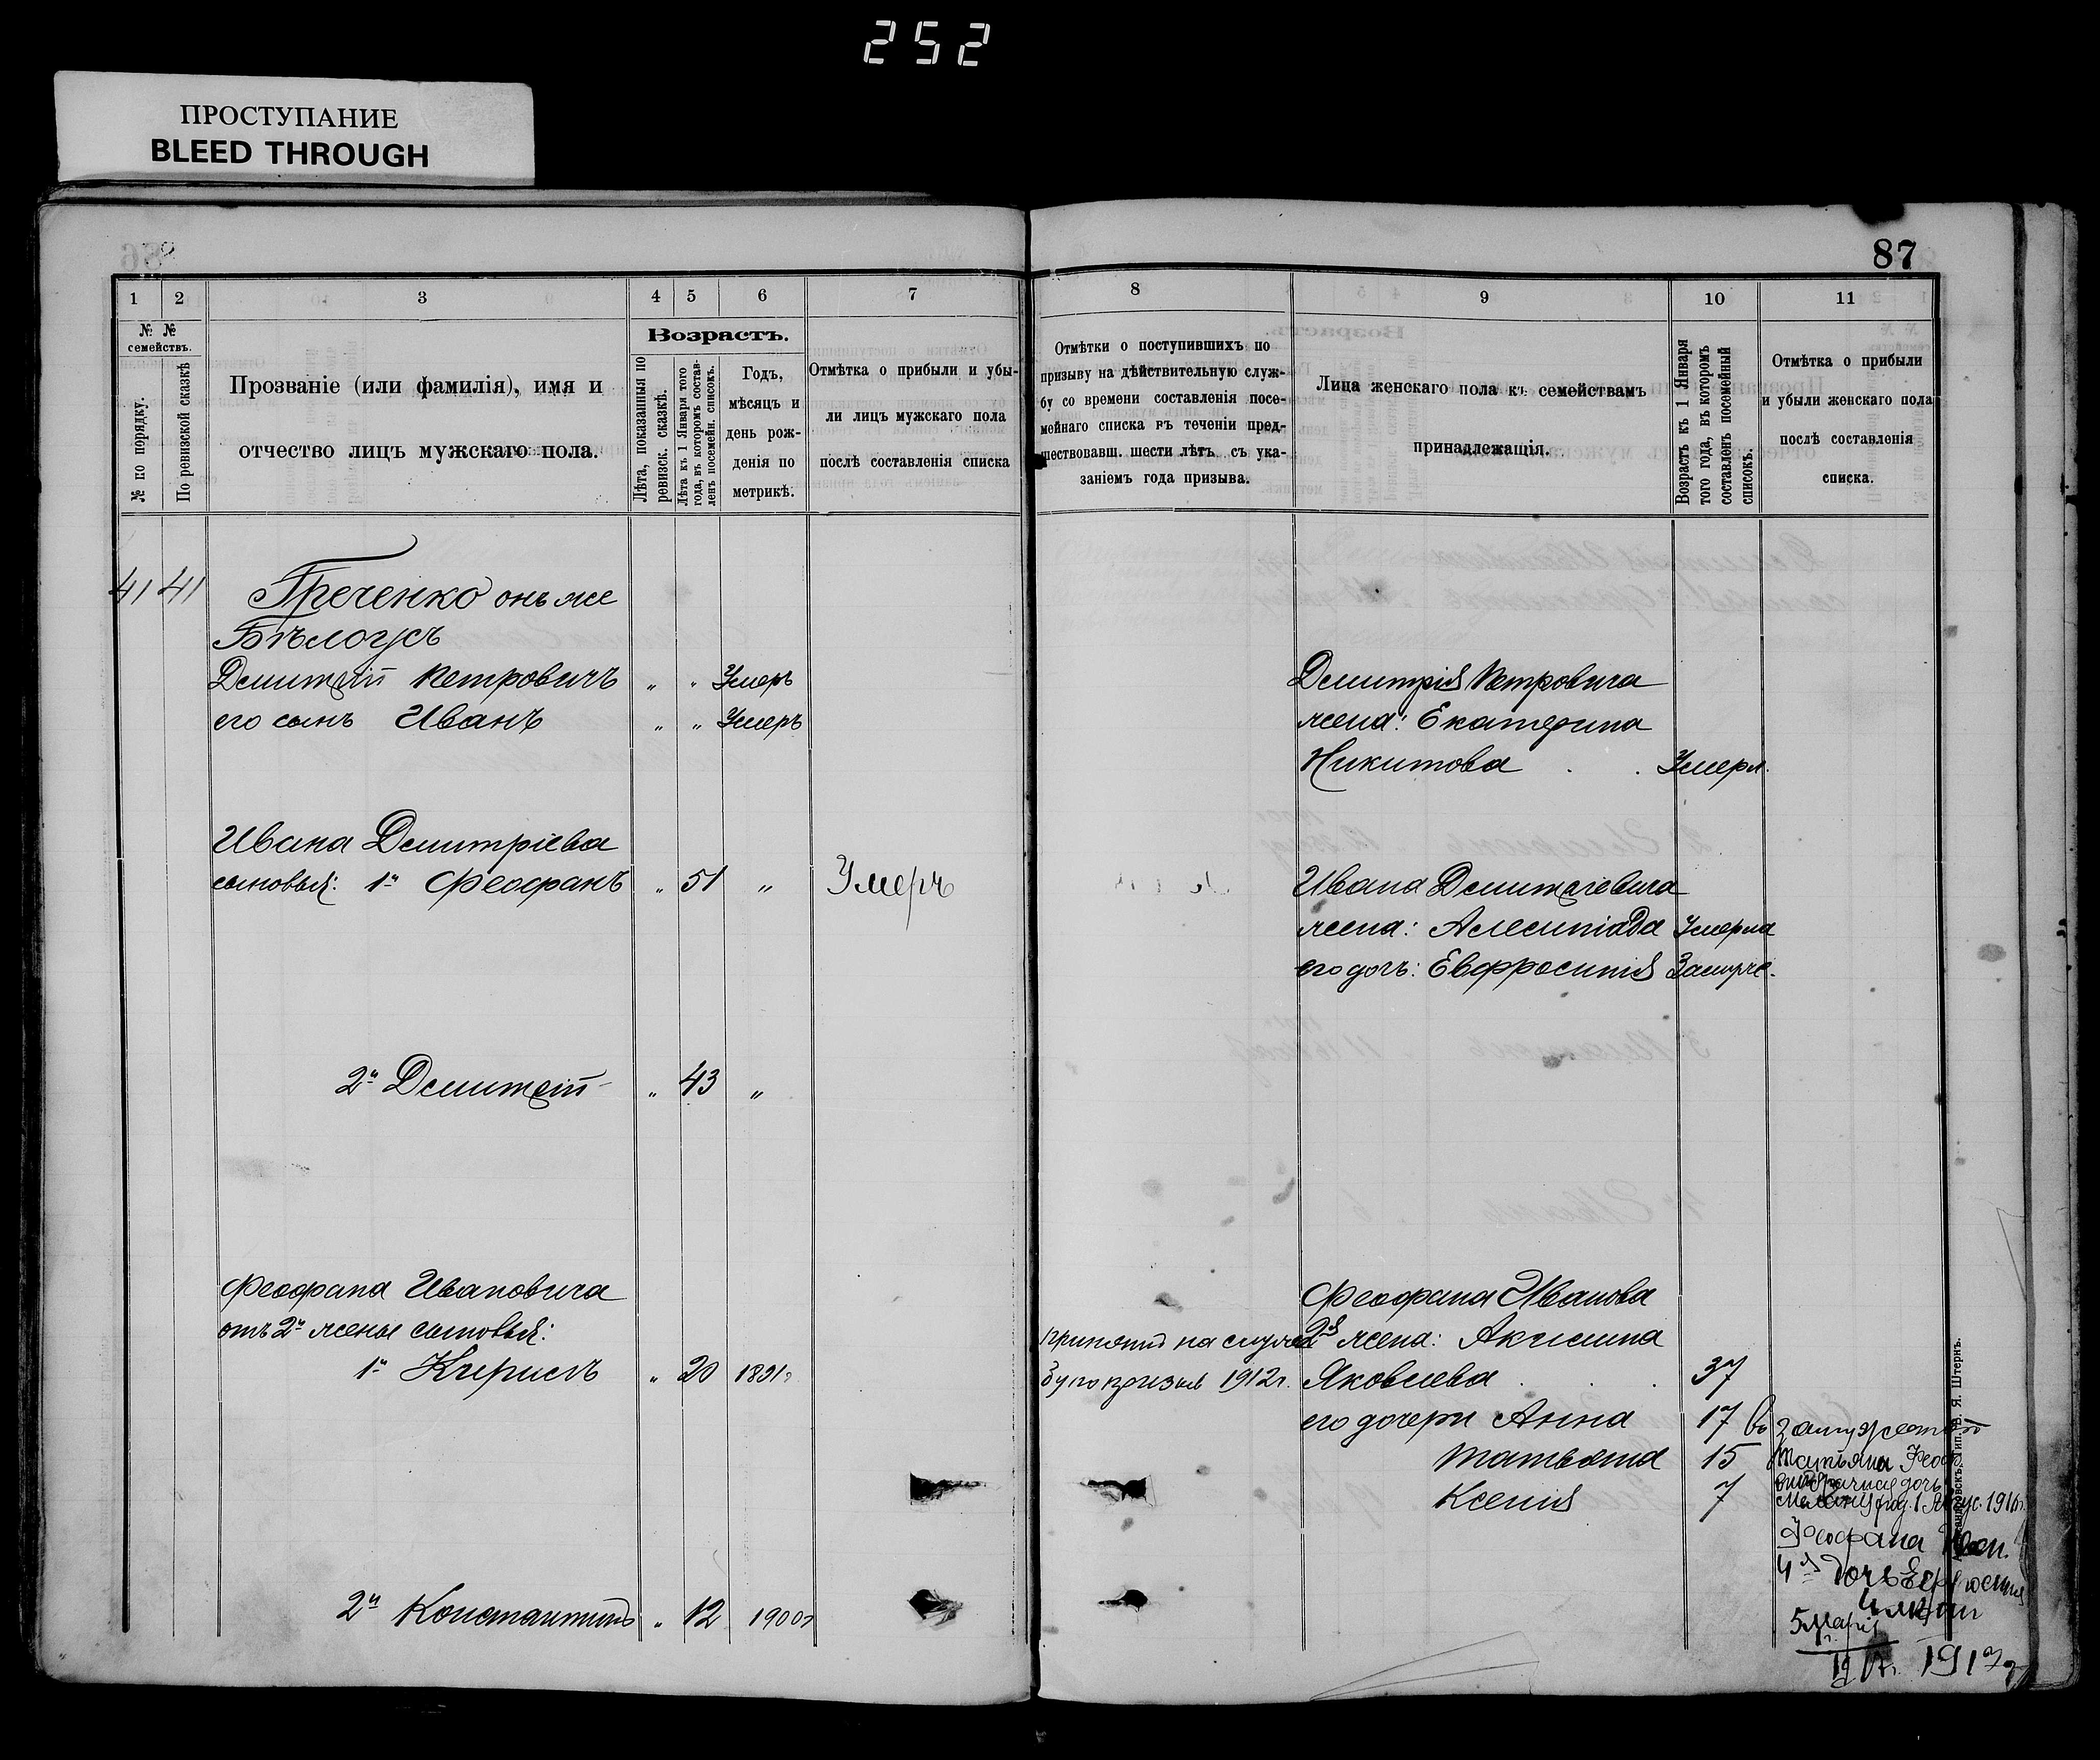 252
ПРОСТУПАНИЕ
BLEED THROUGH
87
1 2 3 4 5 6 7
8 9 10 11
№ № семействъ.
№ по порядку.
По ревизской сказкѣ
Прозваніе (или фамилія), имя и
отчество лицъ мужскаго пола.
Возрастъ.
Лѣта, показанныя по
ревизск. сказкѣ.
Лѣта къ 1 Января того
года, въ которомъ состав-
ленъ посемейн. списокъ.
Годъ,
мѣсяцъ и
день рож-
денія по
метрикѣ.
Отмѣтка о прибыли и убы-
ли лицъ мужскаго пола
послѣ составленія списка
Отмѣтки о поступившихъ по
призыву на дѣйствительную служ-
бу со времени составленія посе-
мейнаго списка въ теченіи пред-
шествовавш. шести лѣтъ съ ука-
заніемъ года призыва.
Лица женскаго пола къ семействамъ
принадлежащія.
Возрастъ къ 1 Января
того года, въ которомъ
составленъ посемейный
списокъ.
Отмѣтка о прибыли
и убыли женскаго пола
послѣ составленія
списка.
41 41 Греченко онъ же
Бѣлоусъ
Дмитрій Петровичъ " " Умеръ
его сынъ Иванъ " " Умеръ
Ивана Дмитріева
сыновья: 1й Феофанъ " 51 " Умеръ
2й Дмитрій " 43 "
Феофана Ивановича
отъ 2й жены сыновья:
1й Кирилъ " 20 1891г
2й Константинъ " 12 1900г
Дмитрія Петровича
жена: Екатерина
Никитова Умерл.
Ивана Дмитріевича
жена: Алемпіада Умерла
его дочь: Евфросинія Замуже.
Феофана Иванова
2я жена: Акилина
Яковлева 37
его дочери Анна 17 въ замужествѣ
Татьяна 15 Татьяна Феоф.
Ксенія 7
Принятъ на служ
бу по призыв 1912г.
дочь
1 Авгус. 191
Феофана Иван.
4я дочь
5 Марія
1917г
В. Я. Штернъ.